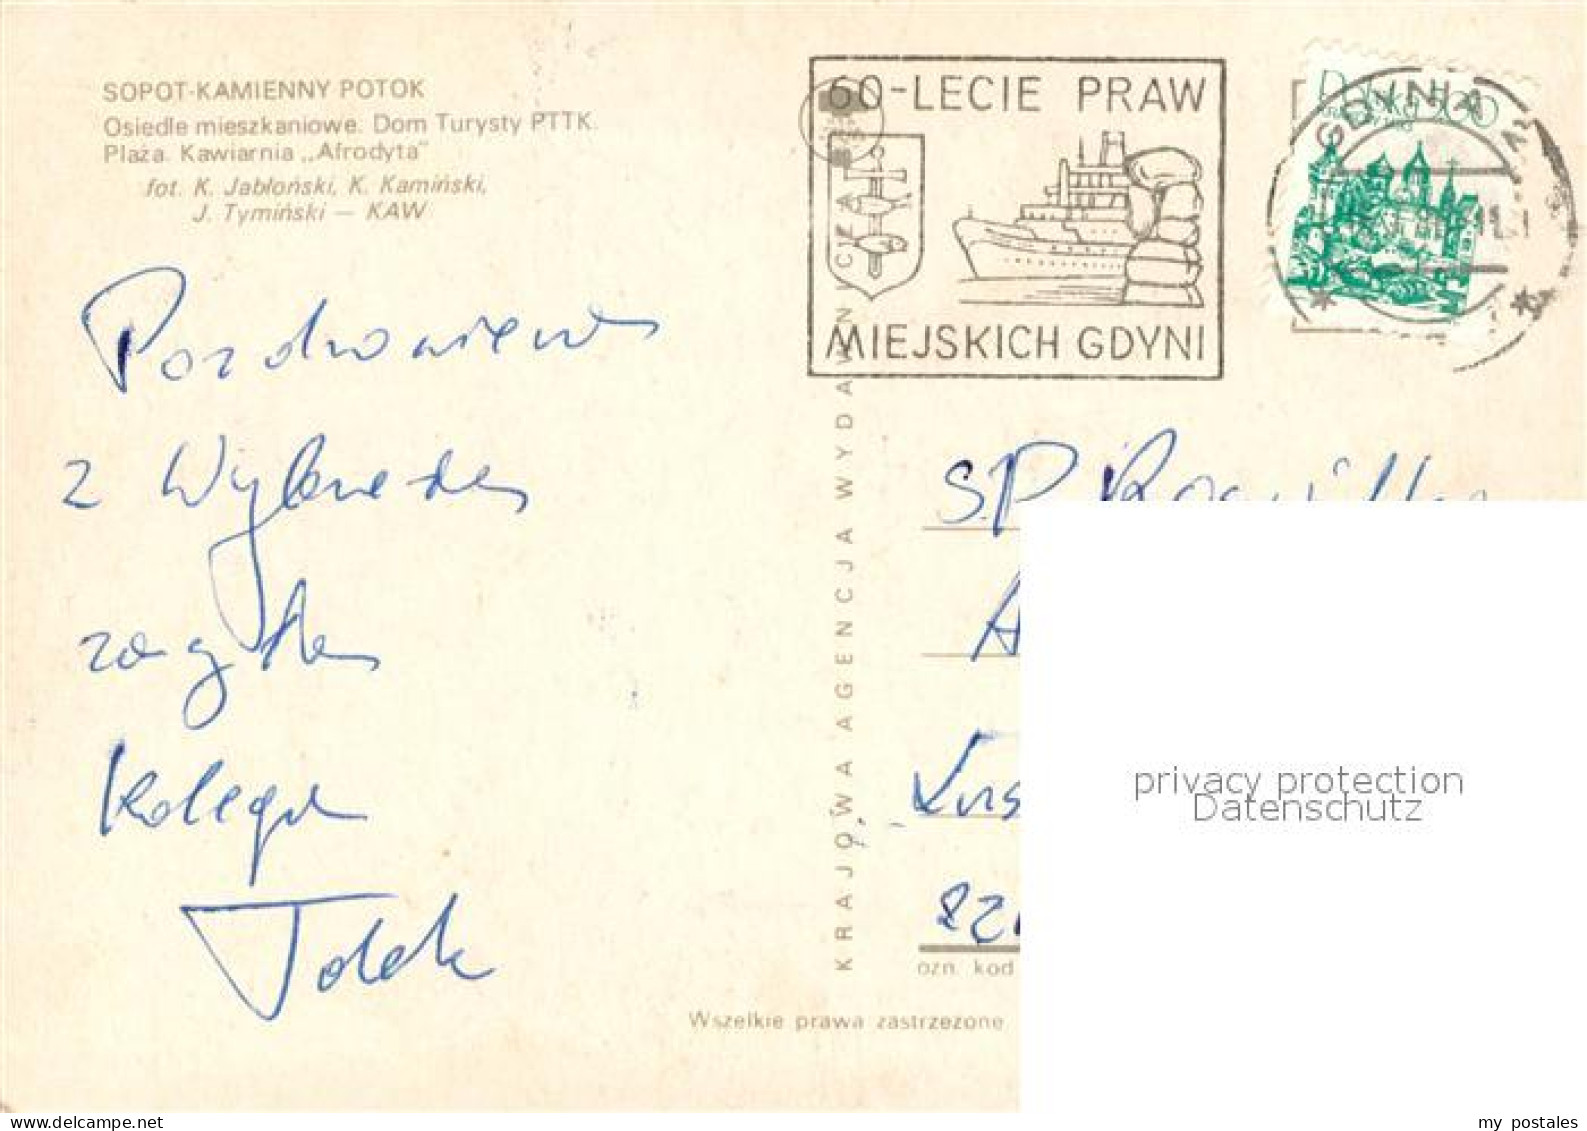 SOPOT-KAMIENNY POTOK
Osiedle mieszkaniowe. Dom Turysty PTTK.
Plaża. Kawiarnia „Afrodyta"
fot. K. Jabłoński, K. Kamiński,
J. Tymiński — KAW
60-LECIE PRAW
MIEJSKICH GDYNI
GDYNIA
Polska 500
Pozdrowienia
z Wybrzeża
zasyła
Kolega
Tolek
KRAJOWA AGENCJA WYDAWNICZA
S.P.
ozn. kod
Wszelkie prawa zastrzeżone
privacy protection
Datenschutz
my postales